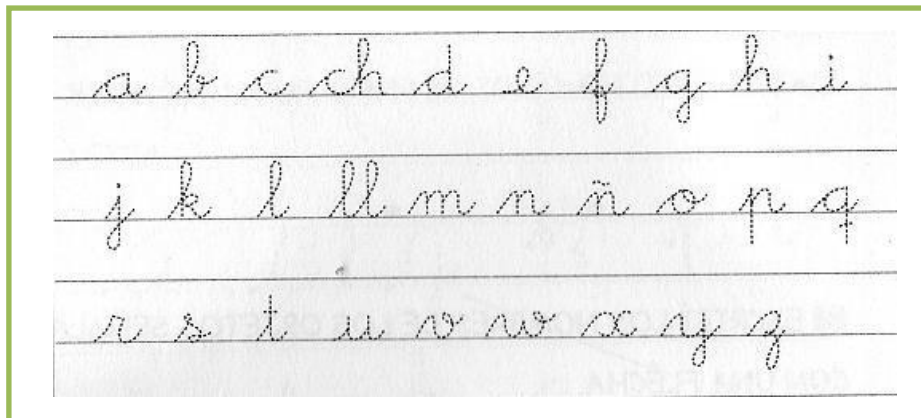 a b c ch d e f g h i
j k l ll m n ñ o p q
r s t u v w x y z